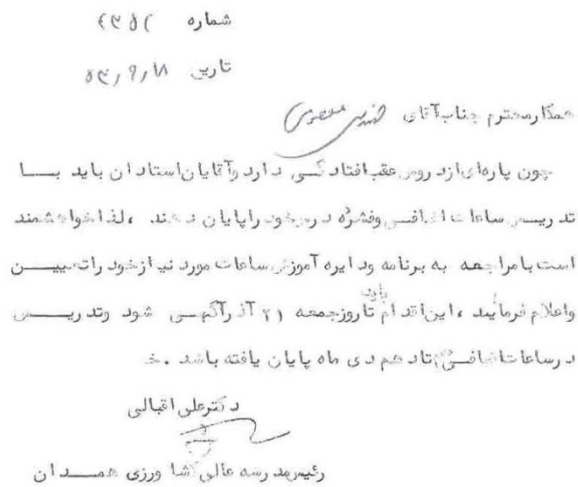 شماره
تاریخ
همکار محترم جناب آقای مهندس معصومی
چون پاره‌ای از دروس عقب افتادگی دارد و آقایان استادان باید بـــا
تدریس ساعات اضافی و فشرده درس خود را پایان دهند ، لذا خواهشمند
است با مراجعه به برنامه و دایره آموزش ساعات مورد نیاز خود را تعییـــن
و اعلام فرمایند ، این اقدام باید تا روز جمعه ۲۱ آذر آگهـی شود و تدریـــس
در ساعات اضافـی تا دهم دی ماه پایان یافته باشد .
دکتر علی اقبالی
رئیس مدرسه عالی کشاورزی همــدان